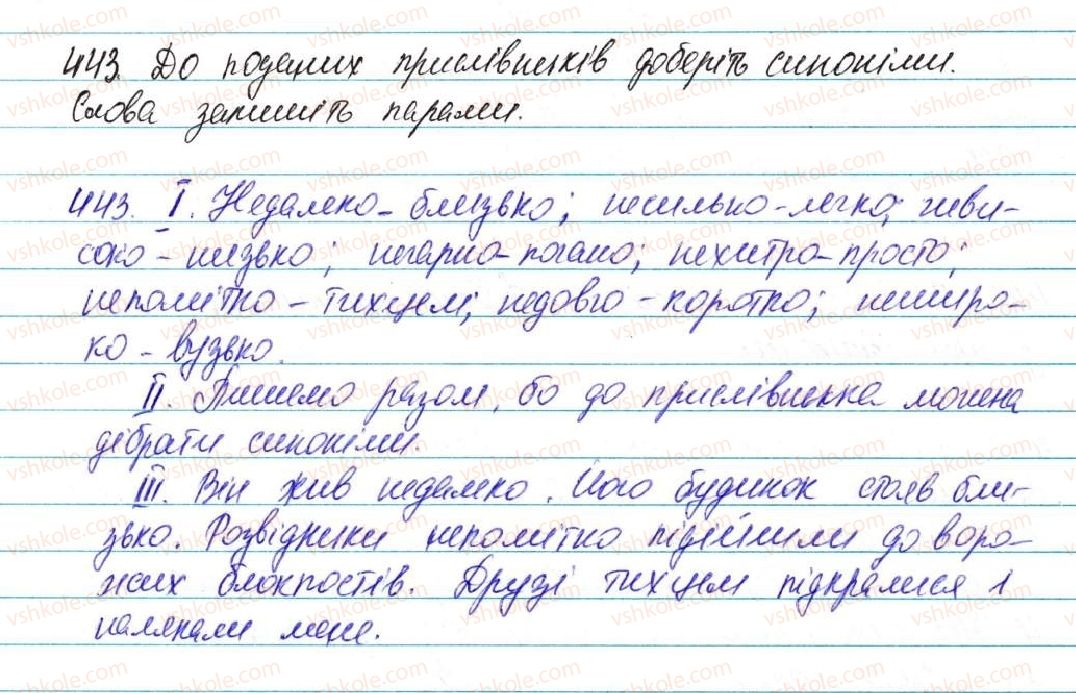 443. До поданих прислівників доберіть синоніми.
Слова запишіть парами.
443. І. Недалеко - близько; несильно - легко; неви-
соко - низько; негарно - погано; нехитро - просто;
непомітно - тихцем; недовго - коротко; неширо-
ко - вузько.
ІІ. Пишемо разом, бо до прислівника можна
дібрати синоніми.
ІІІ. Він жив недалеко. Його будинок стояв бли-
зько. Розвідники непомітно підійшли до воро-
жих блокпостів. Друзі тихцем підкралися і
налякали мене.